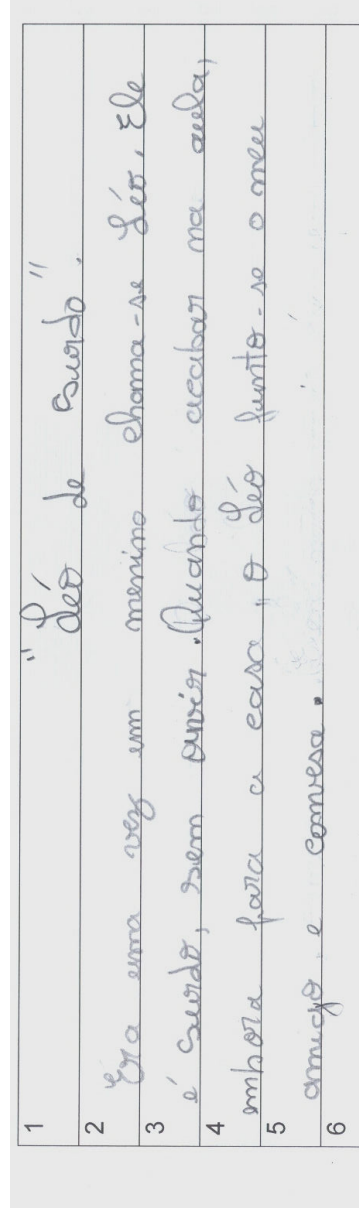 1 "Léo de surdo".
2 Era uma vez um menino chama-se Léo, Ele
3 é surdo, sem ouvir. Quando acabar na aula,
4 embora para a casa, O Léo junto-se o meu
5 amigo e convesa.
6